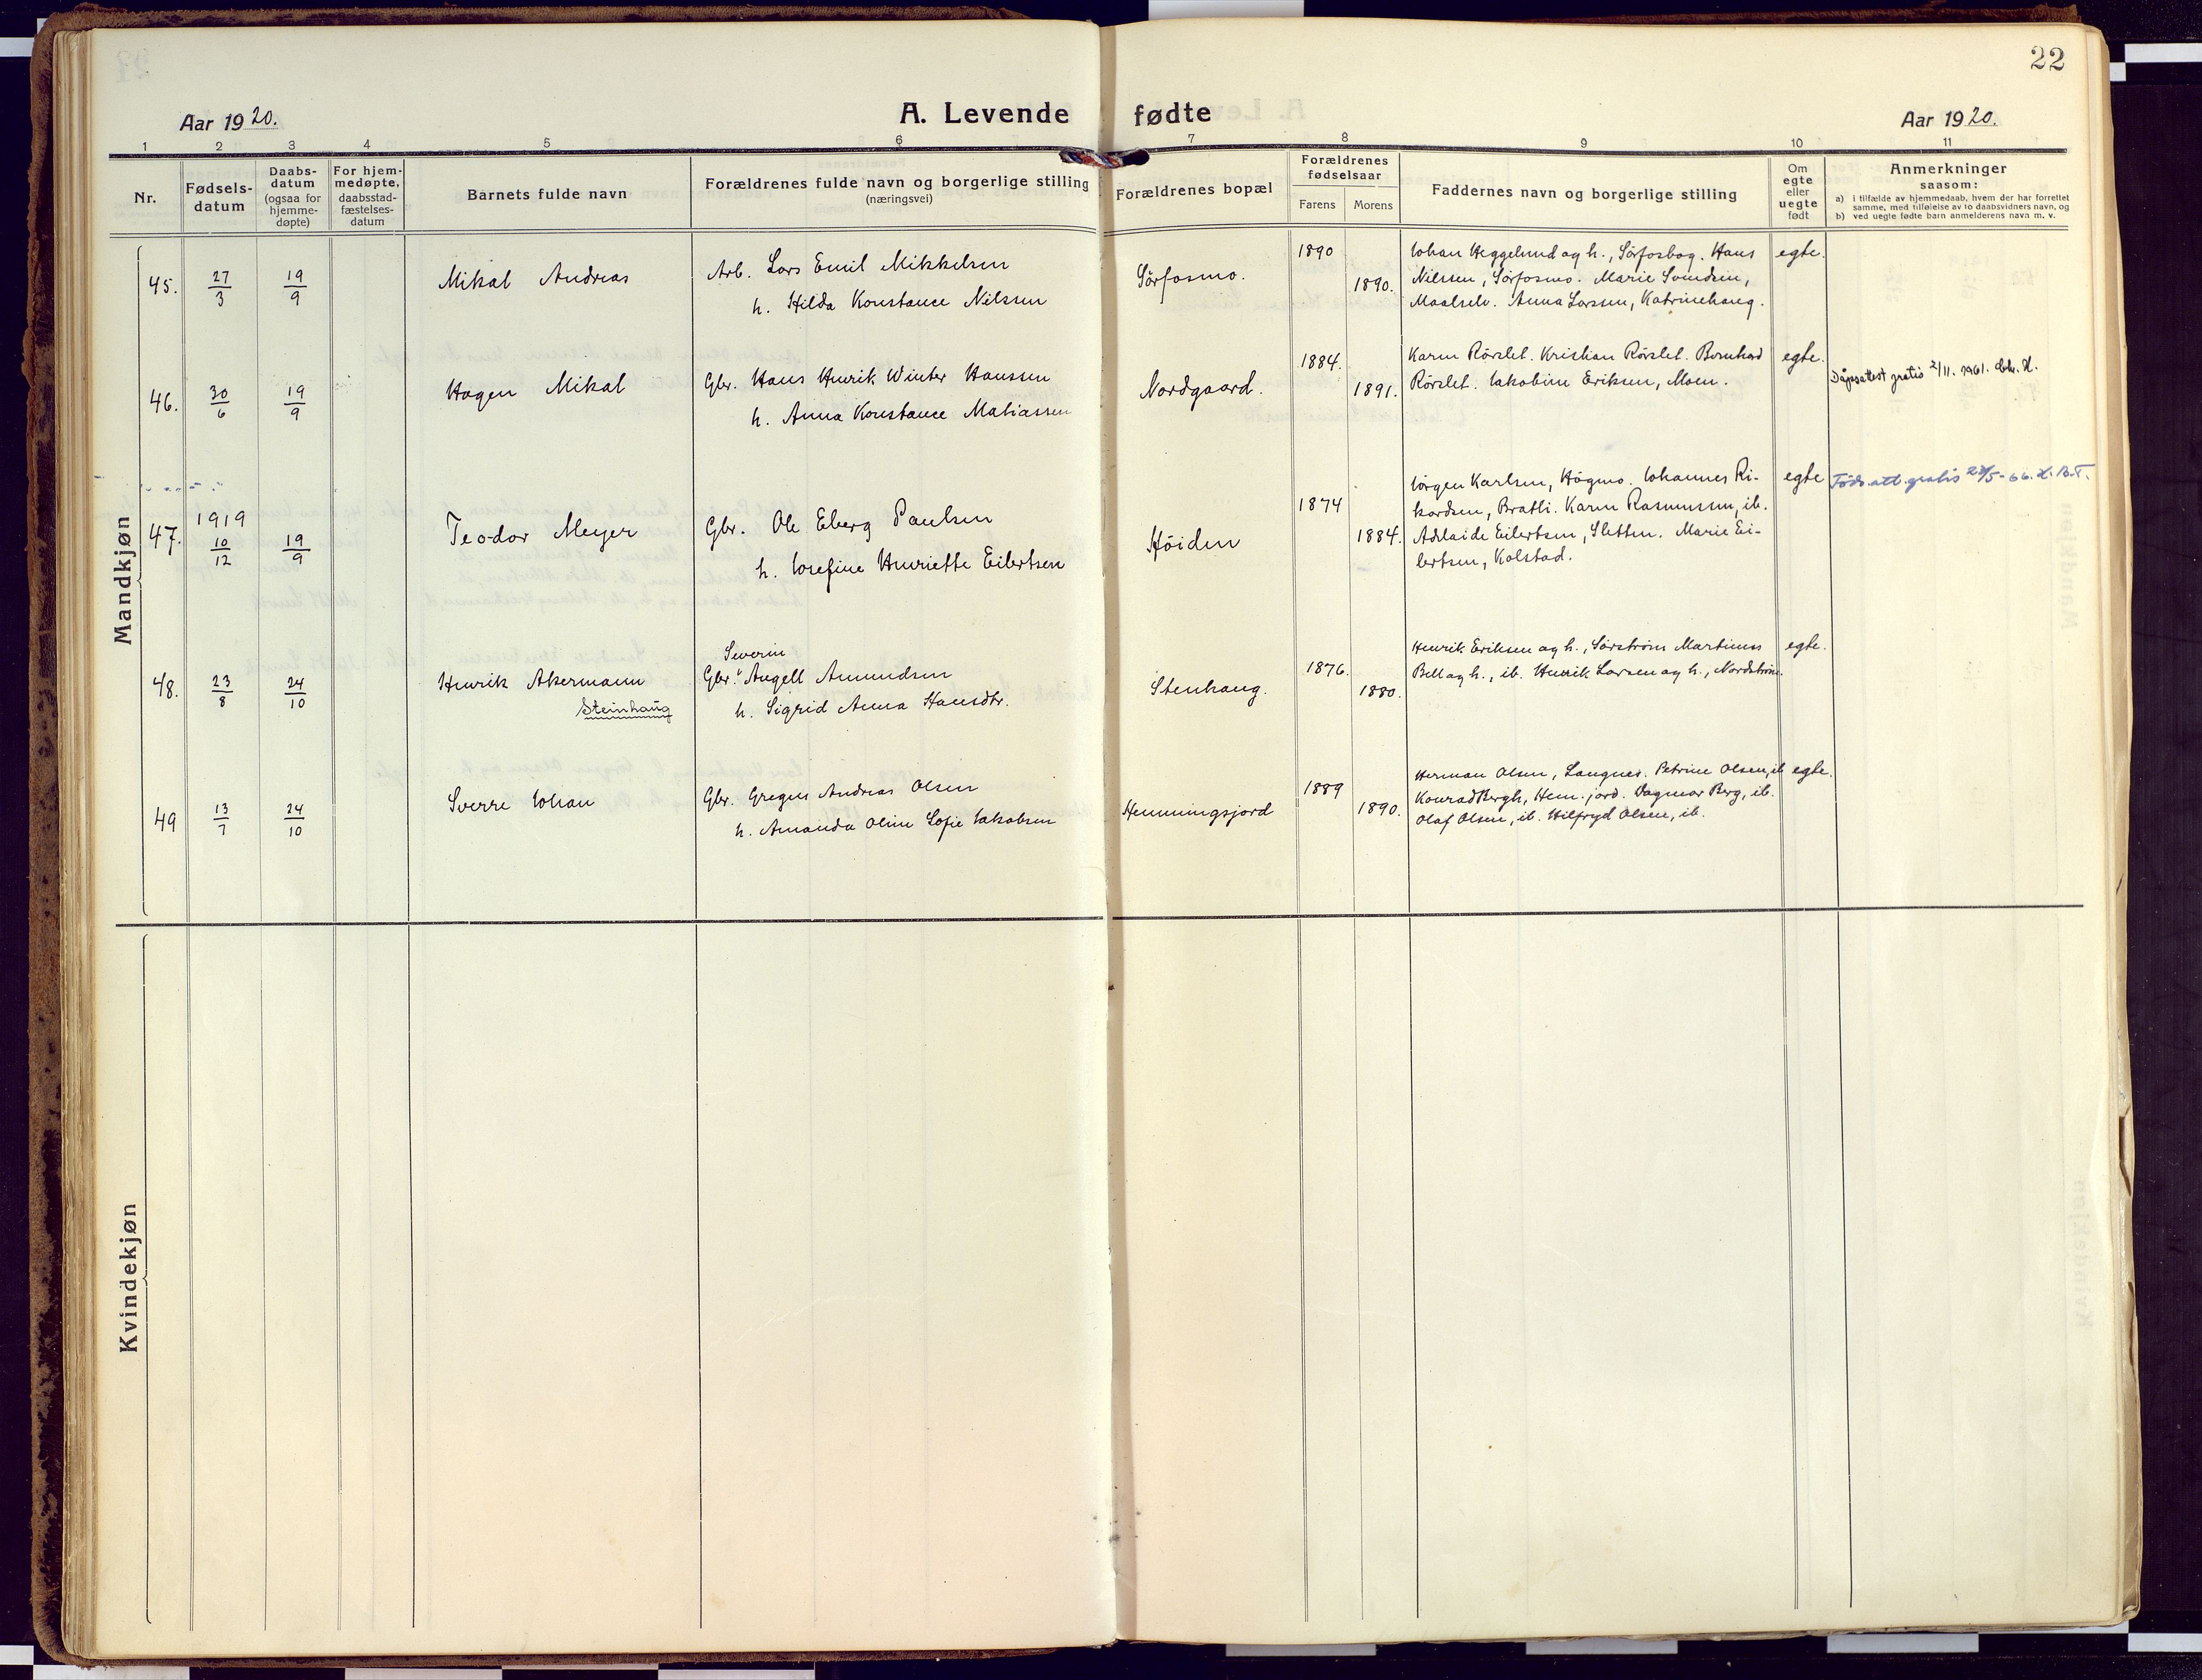 22
Aar 1920.
A. Levende fødte
Aar 1920.
1 2 3 4 5 6 7 8 9 10 11
Nr.
Fødsels-
datum
Daabs-
datum
(ogsaa for
hjemme-
døpte)
For hjem-
medøpte,
daabsstad-
fæstelses-
datum
Barnets fulde navn
Forældrenes fulde navn og borgerlige stilling
(næringsvei)
Forældrenes bopæl
Forældrenes
fødselsaar
Farens Morens
Faddernes navn og borgerlige stilling
Om
egte
eller
uegte
født
Anmerkninger
saasom:
a) i tilfælde av hjemmedaab, hvem der har forrettet
samme, med tilføielse av to daabsvidners navn, og
b) ved uegte fødte barn anmelderens navn m. v.
Mandkjøn
45. 27/3 19/9 Mikal Andreas
Arb. Lars Emil Mikkelsen
h. Hilda Konstance Nilssen
Sørfosmo.
1890
1890.
Johan Heggelund og h., Sørfosbog. Hans
Nilssen, Sørfosmo. Marie Svendsen,
Maalselv. Anna Larssen, Katrinehaug.
egte.
46. 30/6 19/9 Hagen Mikal
Gbr. Hans Henrik Winter Hanssen
h. Anna Konstance Matiassen
Nordgaard.
1884.
1891.
Karen Rørslet. Kristian Rørslet. Bernhard
Rørslet. Jakobine Eriksen, Moen.
egte.
Dåpsattest gratis 2/11. 1961.
47. 1919 10/12 19/9 Teodor Meyer
Gbr. Ole Eberg Paulsen
h. Josefine Henriette Eilertsen
Høiden
1874
1884.
Jørgen Karlsen, Høgmo. Johannes Ri-
kardsen, Bratli. Karen Rasmussen, ib.
Adelaide Eilertsen, Sletten. Marie Ei-
lertsen, Kolstad.
egte
Føds.att. gratis 27/5-66.
48. 23/8 24/10 Henrik Akermann
Steinhaug
Severin
Gbr. Angell Amundsen
h. Sigrid Anna Hansdtr.
Stenhaug.
1876.
1880.
Henrik Eriksen og h., Sørstrøm Martinus
Bell og h., ib. Henrik Larsen og h., Nordstrøm.
egte.
49 13/7 24/10 Sverre Johan
Gbr. Gregus Andreas Olsen
h. Amanda Oline Sofie Jakobsen
Hemmingsjord
1889
1890.
Herman Olsen, Langnes. Petrine Olsen, ib
Konrad Bergh, Hem.jord. Dagmar Berg, ib.
Olaf Olsen, ib. Hilfryd Olsen, ib.
egte.
Kvindekjøn